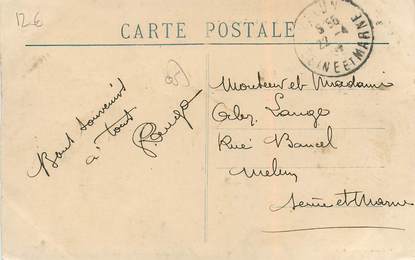 12 €
CARTE POSTALE
5 36
22 -4
SEINE ET MARNE
Bons souvenirs
à tous
Monsieur et Madame
Lange
Rue Bancel
Melun
Seine et Marne